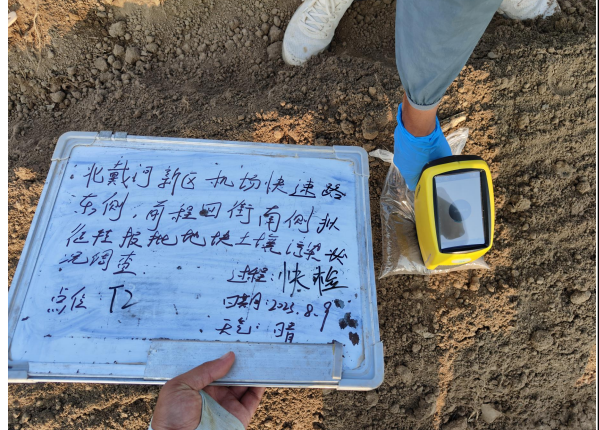 北戴河新区机场快速路
东侧,前程四街南侧拟
征转报批地块土壤污染状
况调查
过程:快检
点位 T2
日期:2025.8.9
天气:晴